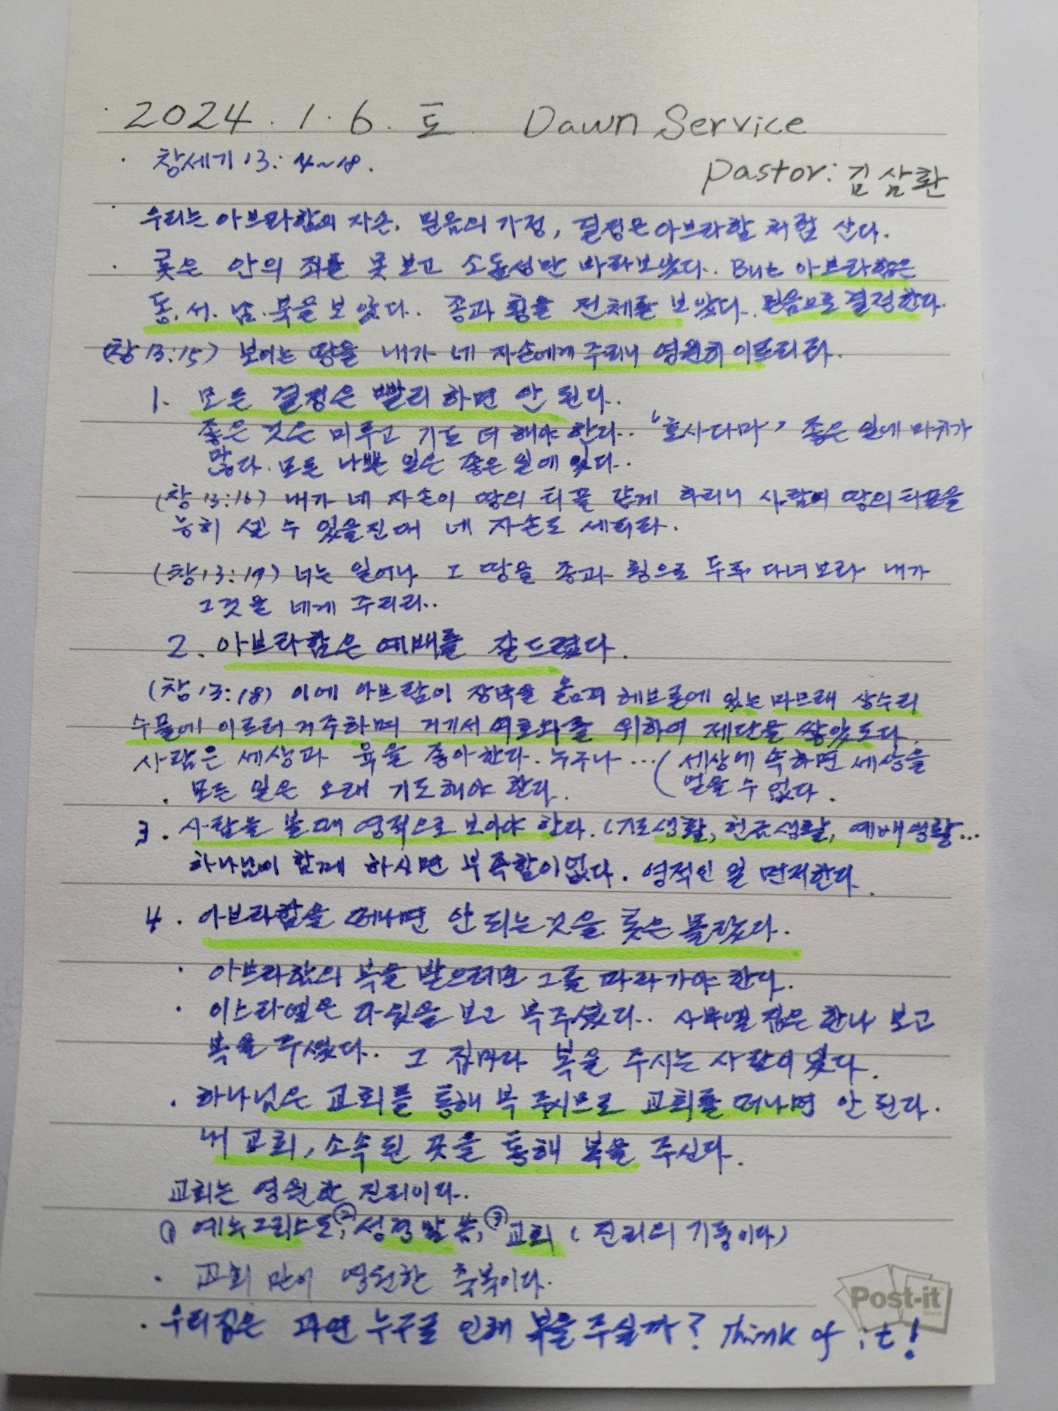 2024. 1. 6. 토. Dawn Service
· 창세기 13: 14~18.
Pastor: 김삼환
· 우리는 아브라함의 자손, 믿음의 가정, 결정은 아브라함 처럼 산다.
· 롯은 안의 죄를 못 보고 소돔성만 바라보았다. But 아브라함은
동, 서, 남, 북을 보았다. 종과 횡을 전체를 보았다. 믿음으로 결정한다.
(창 13:15) 보이는 땅을 내가 네 자손에게 주리니 영원히 이르리라.
1. 모든 결정은 빨리 하면 안 된다.
좋은 것은 미루고 기도 더 해야 한다. '호사다마' 좋은 일에 마귀가
많다. 모든 나쁜 일은 좋은 일에 있다.
(창 13:16) 내가 네 자손이 땅의 티끌 같게 하리니 사람이 땅의 티끌을
능히 셀 수 있을진대 네 자손도 세리라.
(창 13:17) 너는 일어나 그 땅을 종과 횡으로 두루 다녀보라 내가
그것을 네게 주리라..
2. 아브라함은 예배를 잘 드렸다.
(창 13:18) 이에 아브람이 장막을 옮겨 헤브론에 있는 마므레 상수리
수풀에 이르러 거주하며 거기서 여호와를 위하여 제단을 쌓았도다.
사람은 세상과 육을 좋아한다. 누구나 ... ( 세상에 속하면 세상을
· 모든 일은 오래 기도해야 한다. 얻을 수 없다.
3. 사람을 볼 때 영적으로 보아야 한다. (기도생활, 헌금생활, 예배생활...
하나님이 함께 하시면 부족함이 없다. 영적인 일 먼저한다.
4. 아브라함을 떠나면 안 되는 것을 롯은 몰랐다.
· 아브라함의 복을 받으려면 그를 따라가야 한다.
· 이스라엘은 다윗을 보고 복 주셨다. 사무엘 집은 한나 보고
복을 주셨다. 그 집마다 복을 주시는 사람이 있다.
· 하나님은 교회를 통해 복 주시므로 교회를 떠나면 안 된다.
내 교회, 소속된 곳을 통해 복을 주신다.
교회는 영원한 진리이다.
① 예수그리스도, ② 성경말씀, ③ 교회 ( 진리의 기둥이다)
· 교회 만이 영원한 축복이다.
Post-it
· 우리집은 과연 누구로 인해 복을 주실까? Think of it!